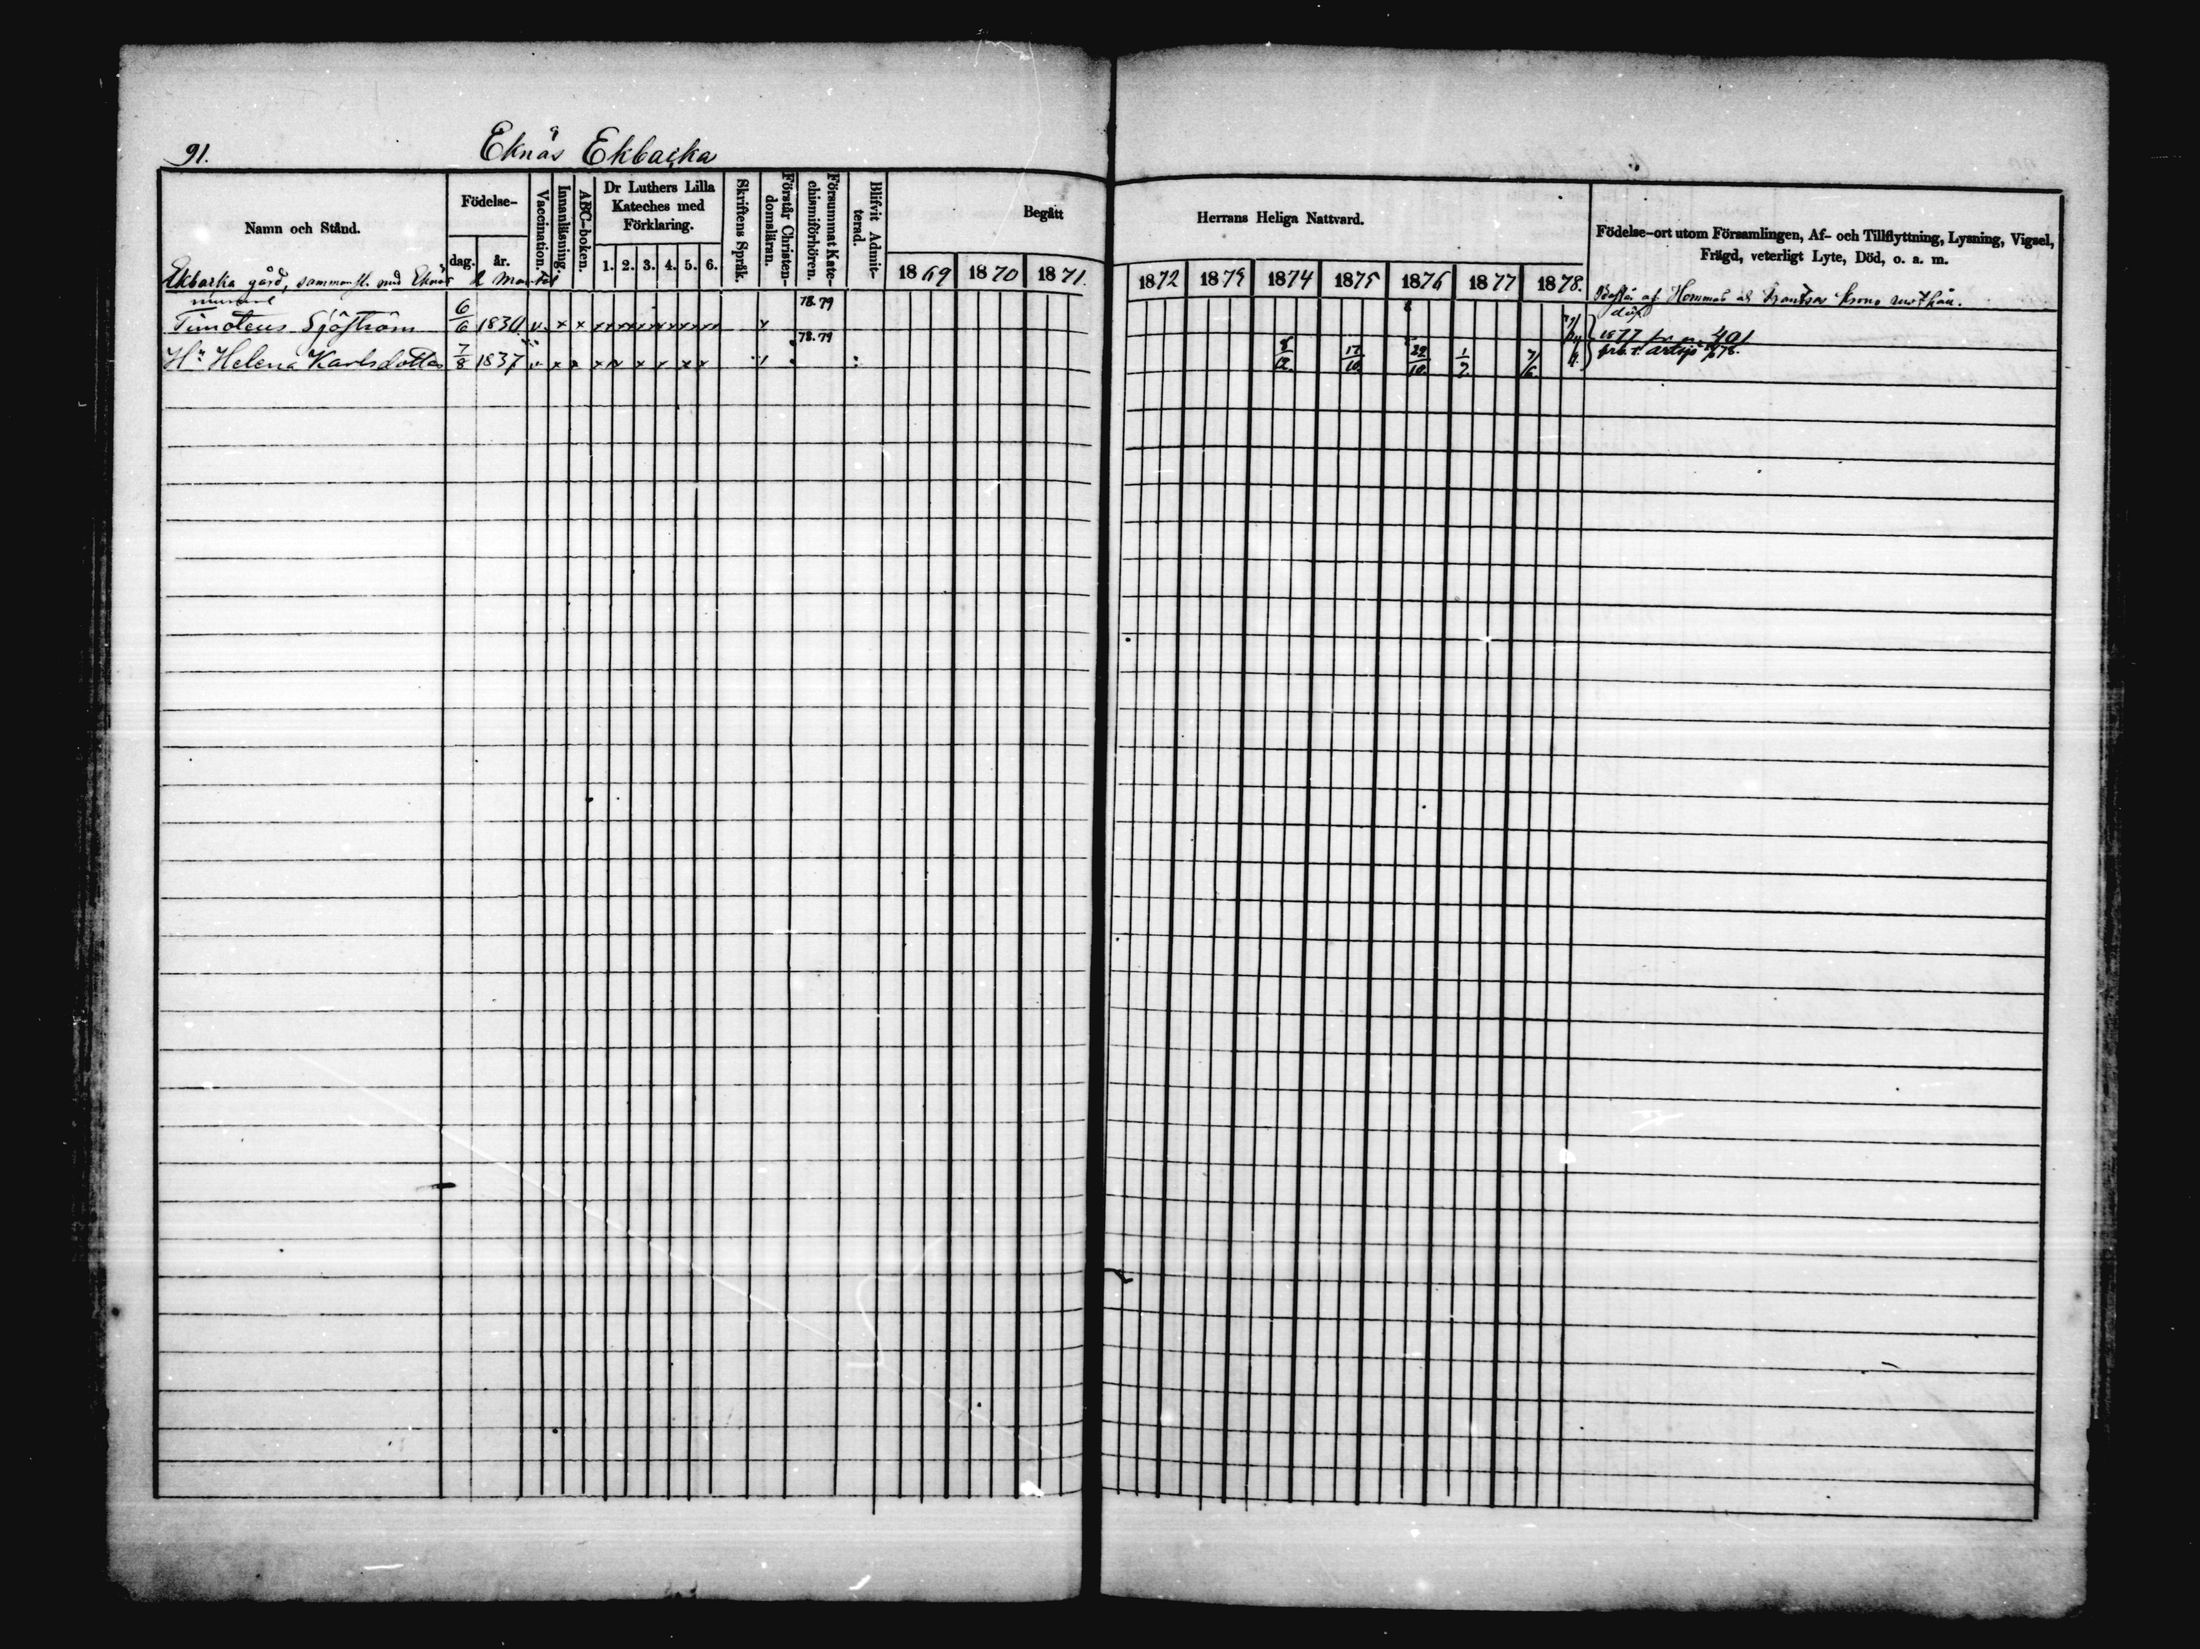 91.
Eknäs Ekbacka
Namn och Stånd.
Födelse-
dag.
år.
Vaccination.
Innanläsning.
ABC-boken.
Dr Luthers Lilla
Kateches med
Förklaring.
1. 2. 3. 4. 5. 6.
Skriftens Språk.
Förstår Christen-
domsläran.
Försummat Kate-
chismiförhören.
Blifvit Admit-
terad.
Begått
1869 1870 1871.
Herrans Heliga Nattvard.
1872 1873 1874 1875 1876 1877 1878.
Födelse-ort utom Församlingen, Af- och Tillflyttning, Lysning, Vigsel,
Frägd, veterligt Lyte, Död, o. a. m.
Ekbacka gård, med Eknäs 2
Består af Hommas
Timoteus Sjöström 6/6 1830 v. x x x x x x x x x x x x x 78.79
1877 fr. n. 401
Hu Helena Karlsdotter 7/8 1837 v x x x x x x x x 78.79 8/12. 17/10. 29/10. 1/7. 7/6.
78.